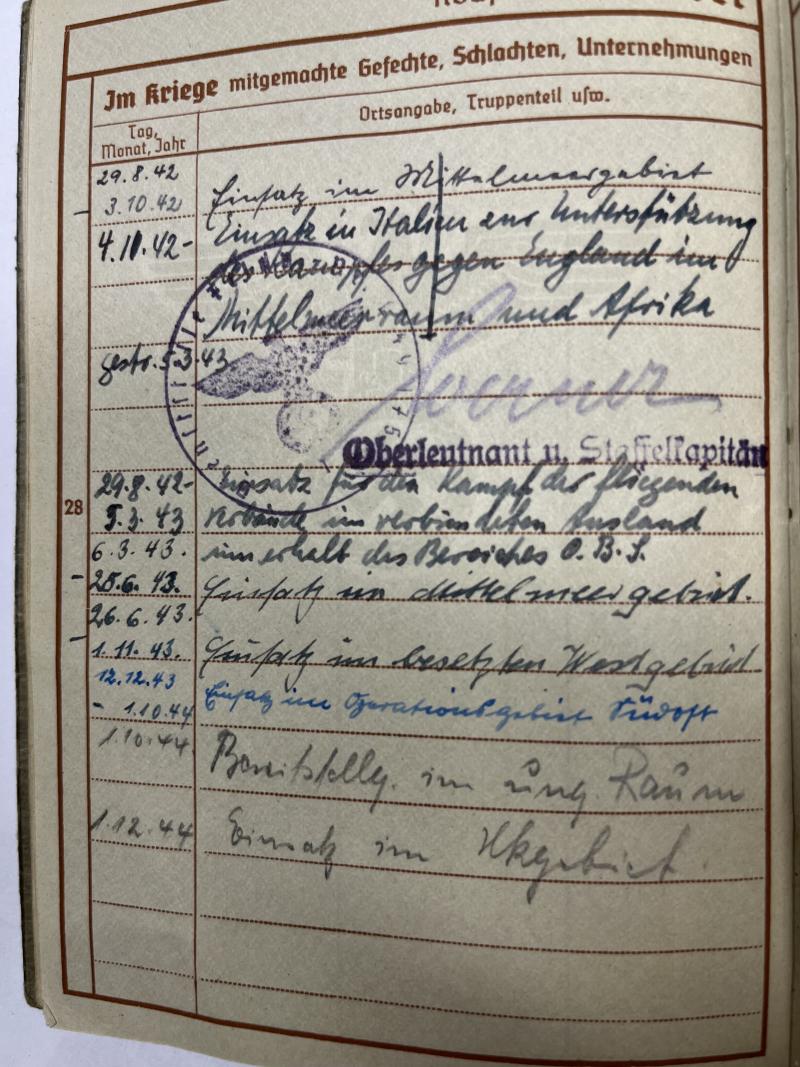 Im Kriege mitgemachte Gefechte, Schlachten, Unternehmungen
Tag, Monat, Jahr
Ortsangabe, Truppenteil usw.
29.8.42
- 3.10.42 Einsatz im Mittelmeergebiet
4.10.42- Einsatz in Italien zur Unterstützung
des Kampfes gegen England im
Mittelmeerraum und Afrika
gestr. 5.3.43
Oberleutnant u. Staffelkapitän
29.8.42- Einsatz für den Kampf der fliegenden
5.3.43 Verbände im verbündeten Ausland
6.3.43. innerhalb des Bereiches O.B.S.
- 25.6.43. Einsatz im Mittelmeergebiet.
26.6.43.
- 1.11.43. Einsatz im besetzten Westgebiet
12.12.43 Einsatz im Operationsgebiet Südost
- 1.10.44
1.10.44 Bereitstellg. im ung. Raum
1.12.44 Einsatz im gebiet.
28